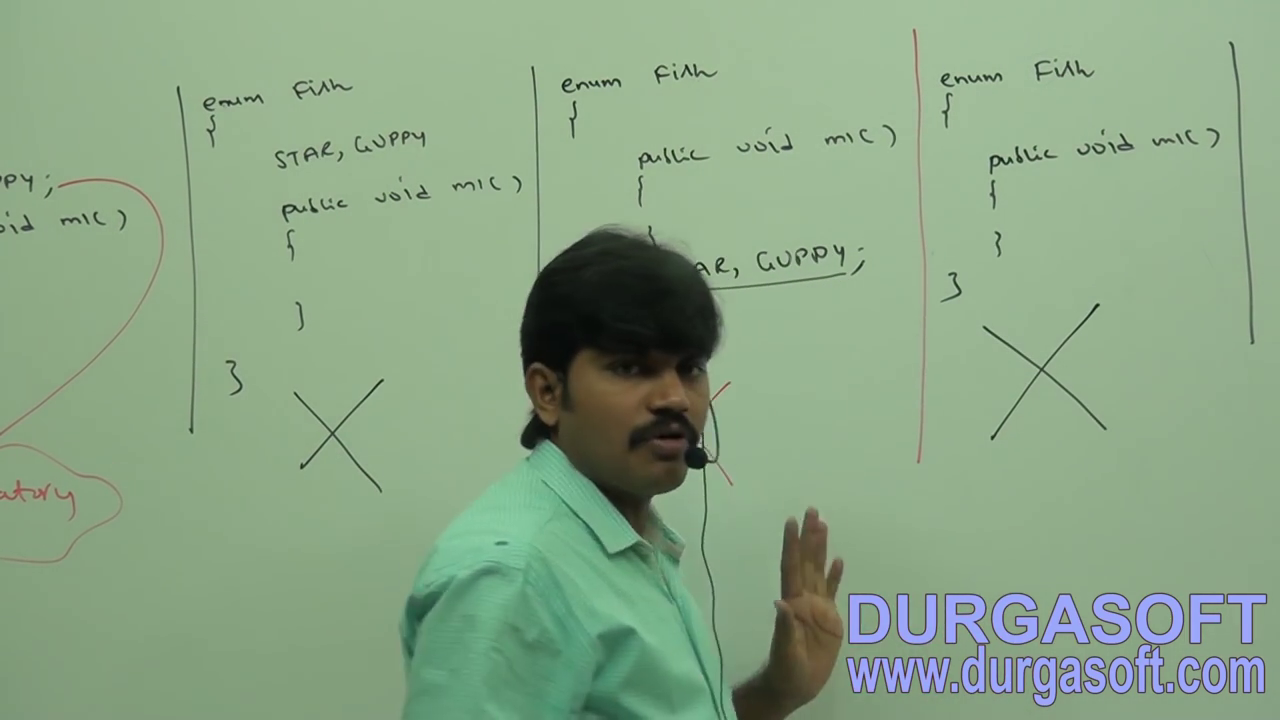 PPY;
oid m1( )
atory
enum Fish
{
STAR, GUPPY
public void m1( )
{
}
}
enum Fish
{
public void m1( )
{
}
AR, GUPPY;
enum Fish
{
public void m1( )
{
}
}
DURGASOFT
www.durgasoft.com